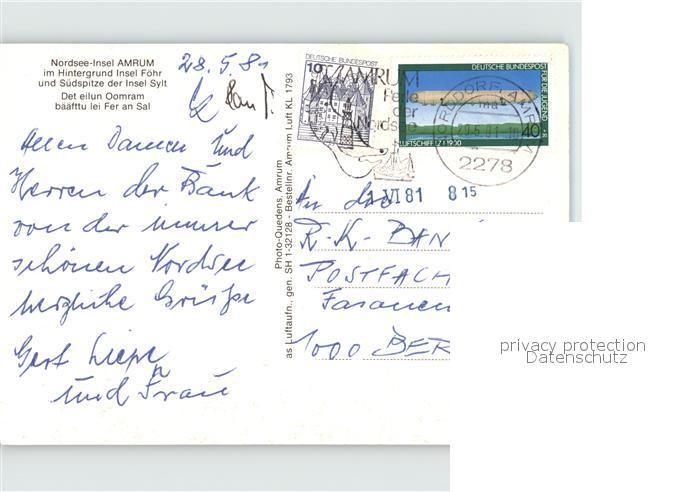 Nordsee-Insel AMRUM
im Hintergrund Insel Föhr
und Südspitze der Insel Sylt
Det eilun Oomram
bääfttu lei Fer an Sal
28.5.81
Allen Damen und
Herren der Bank
von der immer
schönen Nordsee
herzliche Grüße
Gert
und Frau
Photo-Quedens, Amrum
as Luftaufn., gen. SH 1-32128 - Bestellnr. Amrum Luft KL 1793
DEUTSCHE BUNDESPOST
10
AMRUM
Perle
der
Nordsee
DEUTSCHE BUNDESPOST
FÜR DIE JUGEND
40
LUFTSCHIFF LZ 1 1900
2278
VI 81 8 15
An die
R.-K.- BAN
POSTFACH
Fasanen
1000 BER
privacy protection
Datenschutz